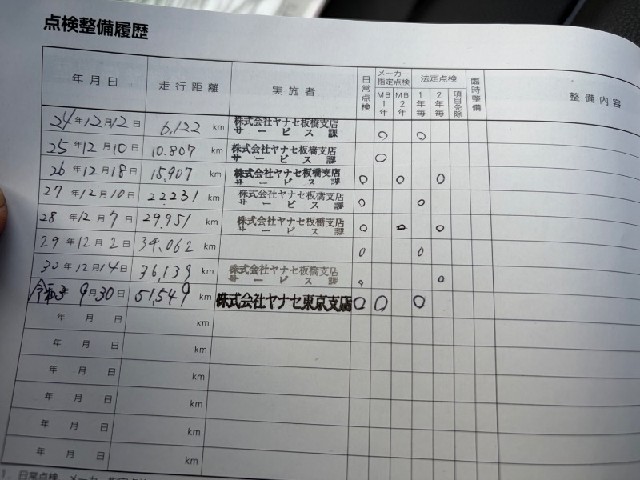 点検整備履歴
年月日 走行距離 実施者 日常点検 メーカ指定点検 MB1年 MB2年 法定点検 1年毎 2年毎 項目全除 臨時整備 整備内容
24年12月12日 6,122 km 株式会社ヤナセ板橋支店 サービス課 ○ ○
25年12月10日 10.807 km 株式会社ヤナセ板橋支店 サービス課 ○
26年12月18日 15,907 km 株式会社ヤナセ板橋支店 サービス課 ○ ○ ○
27年12月10日 22231 km 株式会社ヤナセ板橋支店 サービス課 ○ ○
28年12月7日 29,951 km 株式会社ヤナセ板橋支店 サービス課 ○ ○
29年12月2日 34,062 km ○ ○
30年12月14日 36,139 km 株式会社ヤナセ板橋支店 サービス課 ○ ○
9月30日 51549 km 株式会社ヤナセ東京支店 ○ ○ ○
年 月 日 km
年 月 日 km
年 月 日 km
年 月 日 km
年 月 日 km
年 月 日 km
1. 日常点検